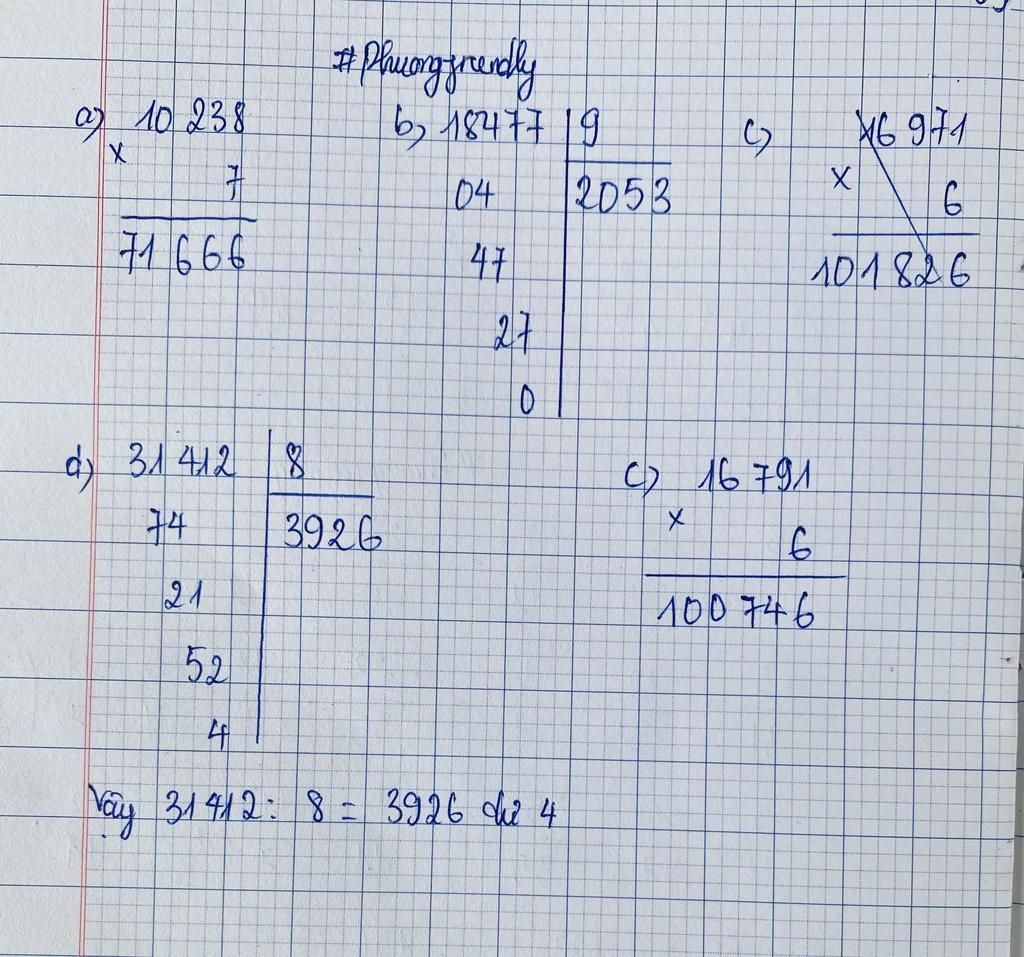 #Phuongfriendly
a) 10 238
x
7
71 666
b, 18477 9
04 2053
47
27
0
c) 16 971
x
6
101826
d) 31 412 8
74 3926
21
52
4
c) 16 791
x
6
100 746
Vậy 31412 : 8 = 3926 dư 4